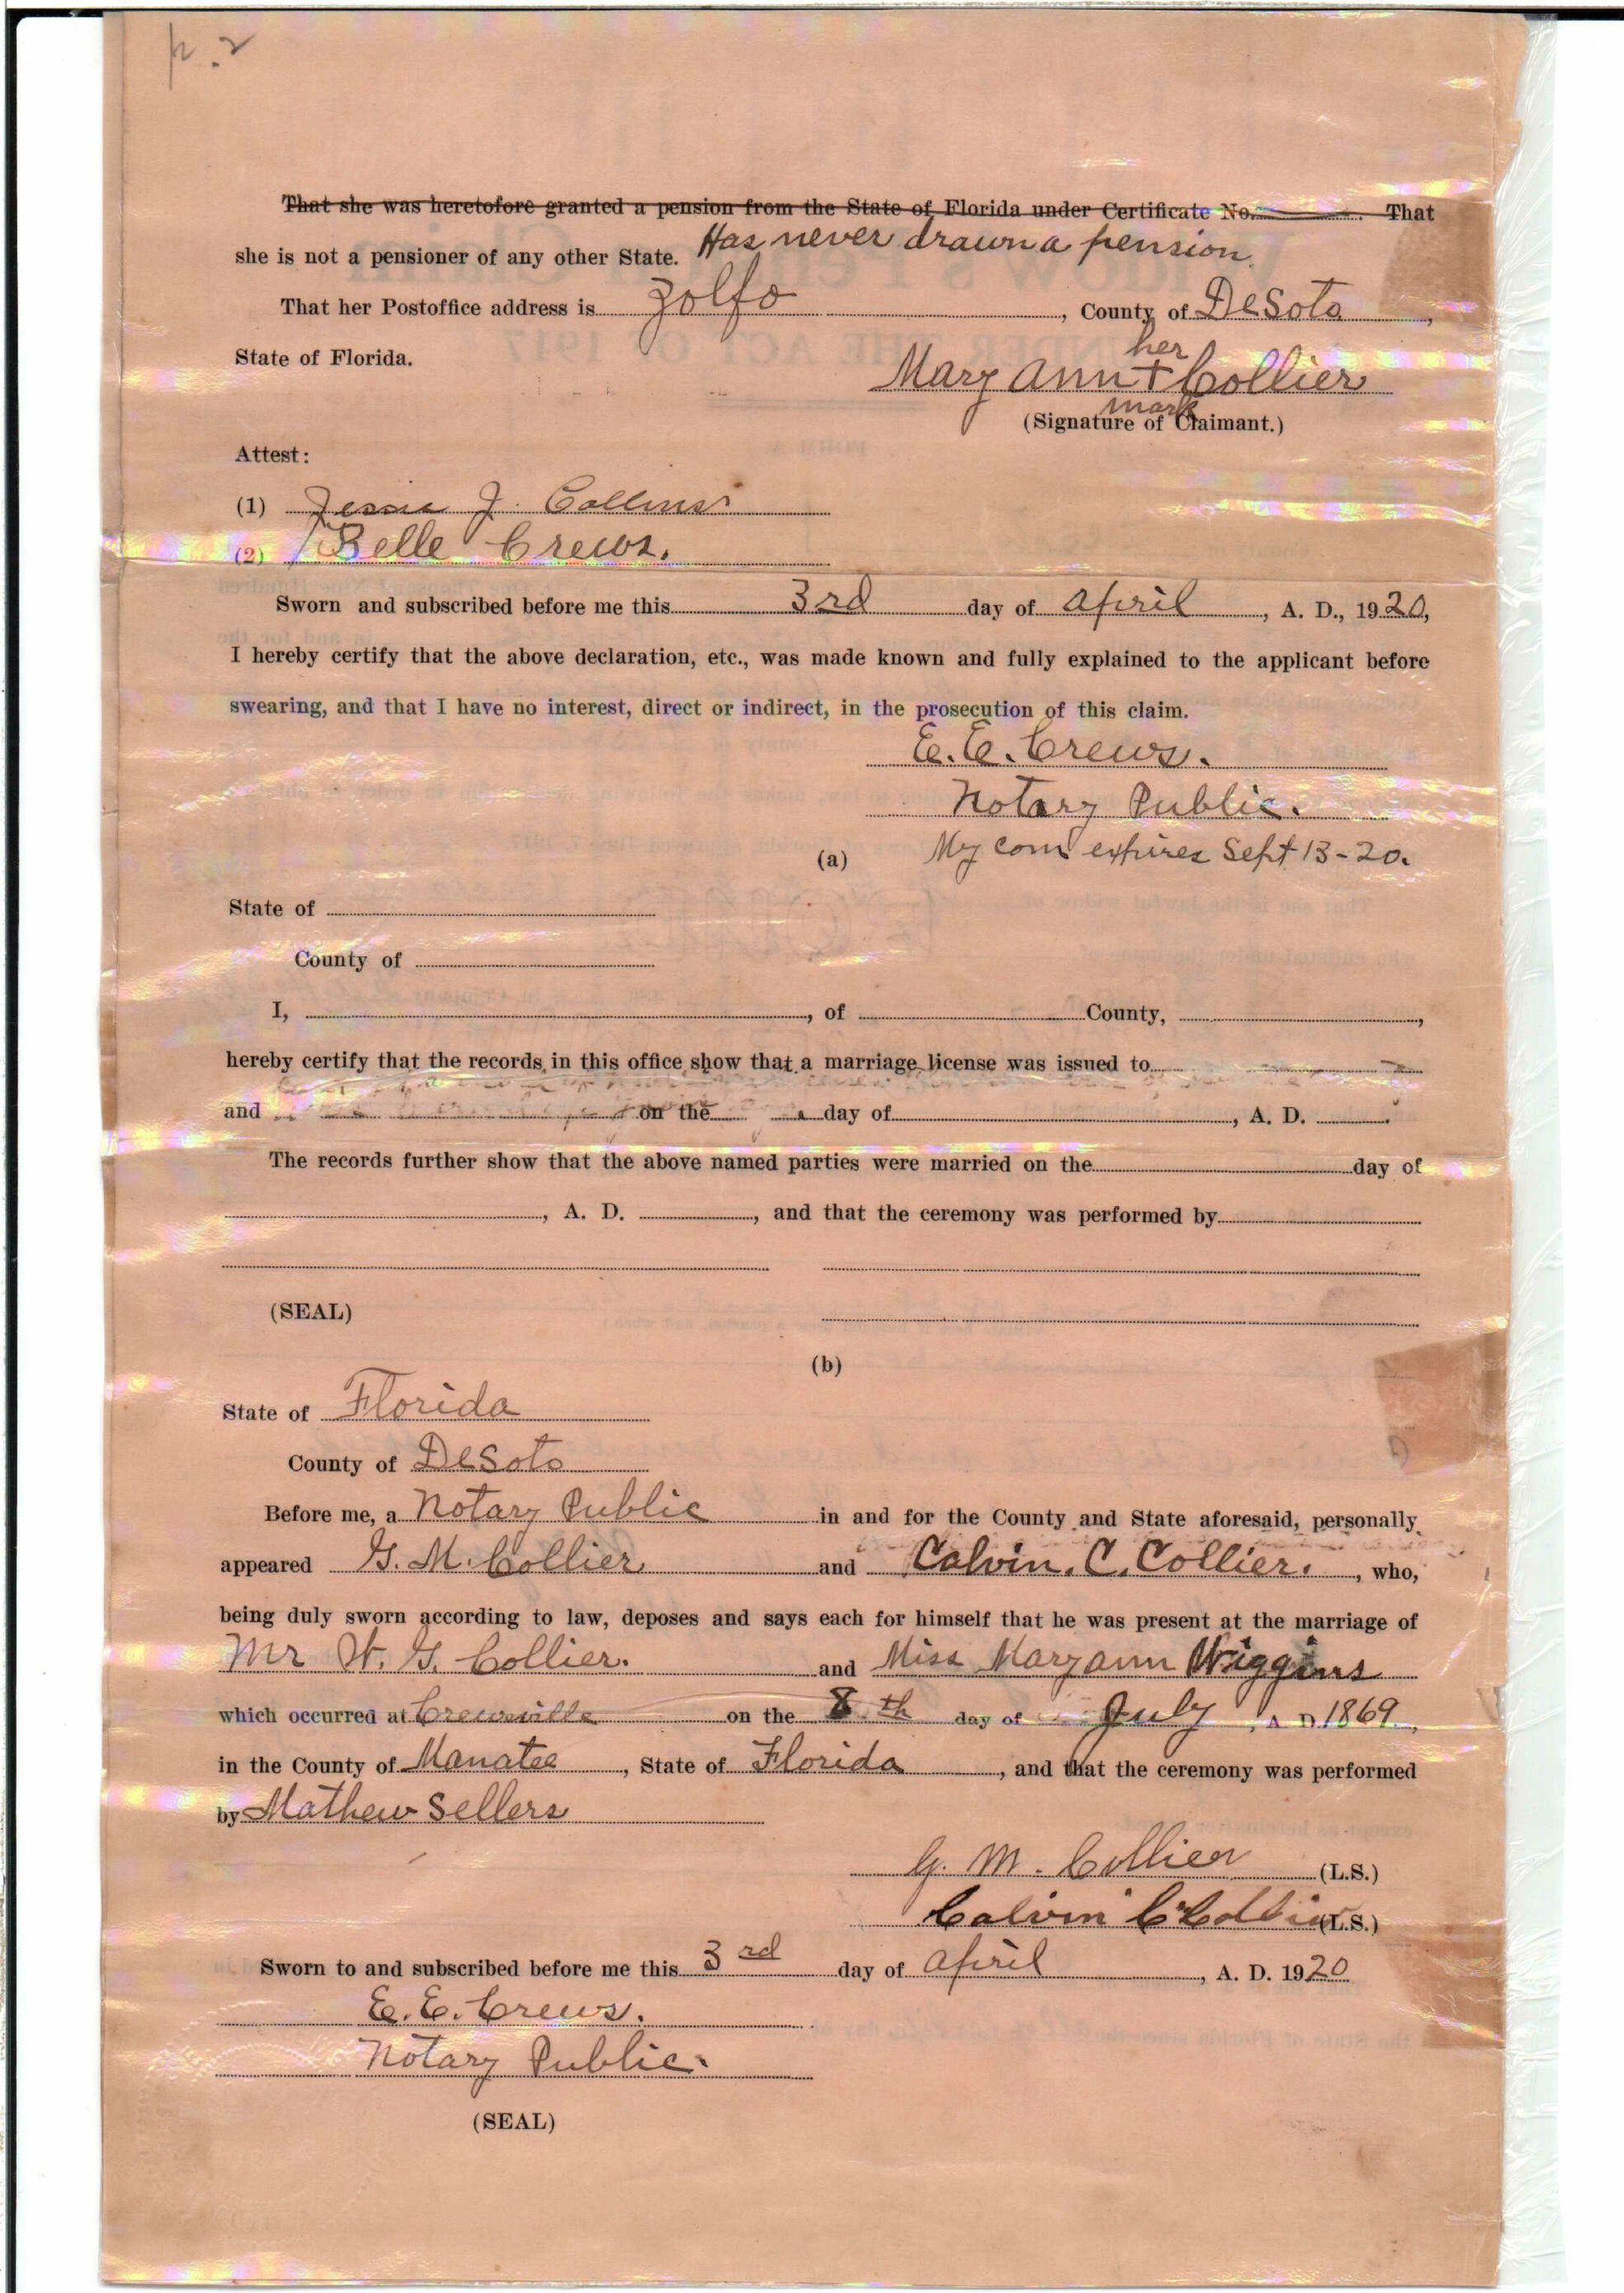 p. 2
That she was heretofore granted a pension from the State of Florida under Certificate No. . That
she is not a pensioner of any other State. Has never drawn a pension.
That her Postoffice address is Zolfo , County of DeSoto ,
State of Florida.
her
Mary Ann + Collier
mark
(Signature of Claimant.)
Attest:
(1) Jessie J. Collins
(2) Belle Crews.
Sworn and subscribed before me this 3rd day of April , A. D., 1920,
I hereby certify that the above declaration, etc., was made known and fully explained to the applicant before
swearing, and that I have no interest, direct or indirect, in the prosecution of this claim.
E. E. Crews.
Notary Public.
(a) My com expires Sept 13-20.
State of
County of
I, , of County, ,
hereby certify that the records in this office show that a marriage license was issued to
and on the day of , A. D. .
The records further show that the above named parties were married on the day of
, A. D. , and that the ceremony was performed by
(SEAL)
(b)
State of Florida
County of DeSoto
Before me, a Notary Public in and for the County and State aforesaid, personally
appeared G. M. Collier and Calvin. C. Collier. , who,
being duly sworn according to law, deposes and says each for himself that he was present at the marriage of
Mr W. G. Collier. and Miss Maryann Wiggins
which occurred at Crewsville on the 8th day of July , A. D. 1869 ,
in the County of Manatee , State of Florida , and that the ceremony was performed
by Mathew Sellers
G. M. Collier (L.S.)
Calvin C Collier (L.S.)
Sworn to and subscribed before me this 3rd day of April , A. D. 1920
E. E. Crews.
Notary Public.
(SEAL)